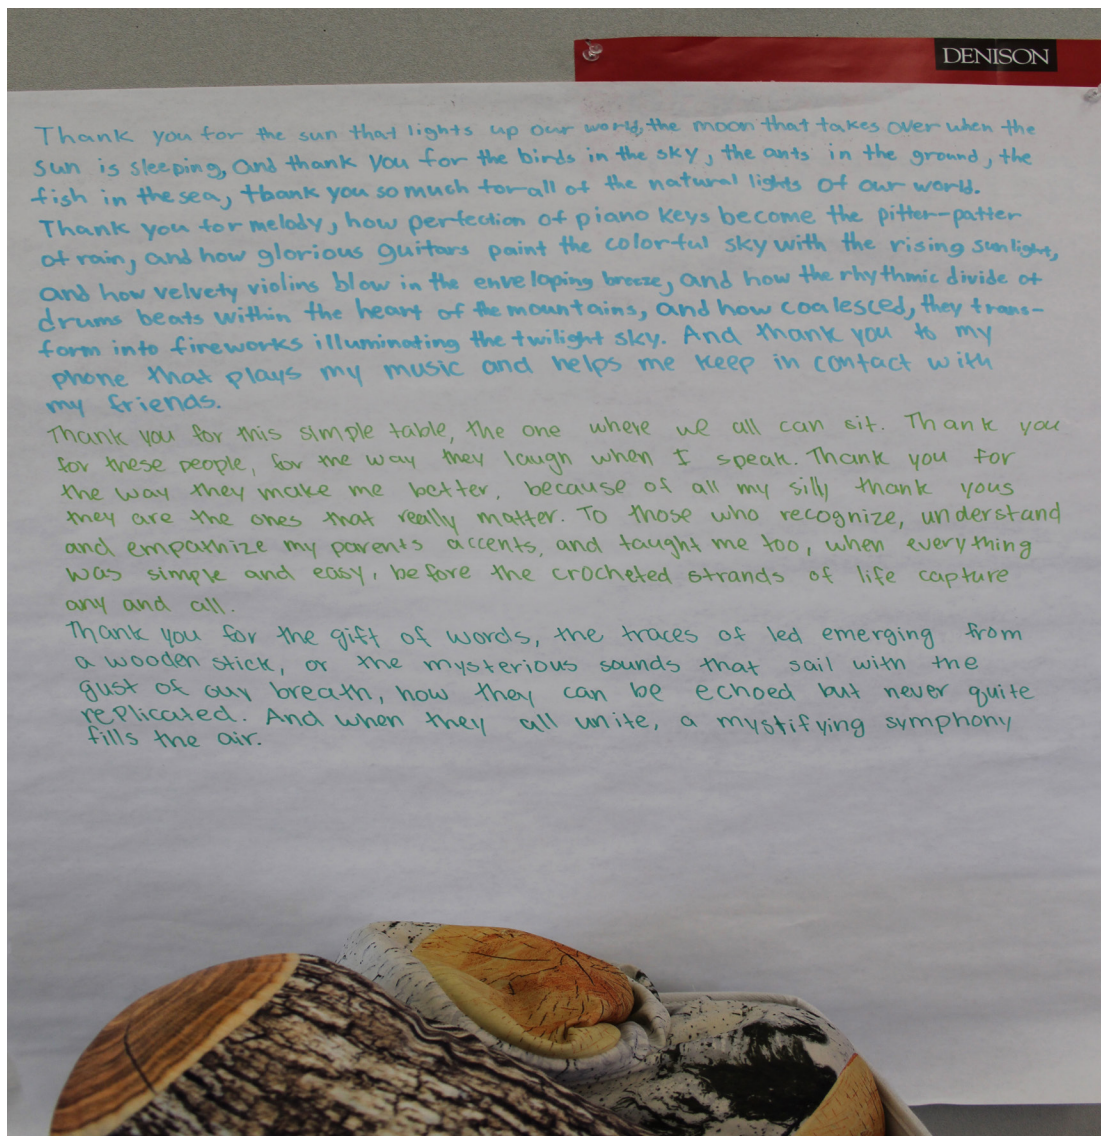 DENISON
Thank you for the sun that lights up our world, the moon that takes over when the
sun is sleeping, and thank you for the birds in the sky, the ants in the ground, the
fish in the sea, thank you so much for all of the natural lights of our world.
Thank you for melody, how perfection of piano keys become the pitter-patter
of rain, and how glorious guitars paint the colorful sky with the rising sunlight,
and how velvety violins blow in the enveloping breeze, and how the rhythmic divide of
drums beats within the heart of the mountains, and how coalesced, they trans-
form into fireworks illuminating the twilight sky. And thank you to my
phone that plays my music and helps me keep in contact with
my friends.
Thank you for this simple table, the one where we all can sit. Thank you
for these people, for the way they laugh when I speak. Thank you for
the way they make me better, because of all my silly thank yous
they are the ones that really matter. To those who recognize, understand
and empathize my parents accents, and taught me too, when everything
was simple and easy, before the crocheted strands of life capture
any and all.
Thank you for the gift of words, the traces of led emerging from
a wooden stick, or the mysterious sounds that sail with the
gust of our breath, how they can be echoed but never quite
replicated. And when they all unite, a mystifying symphony
fills the air.